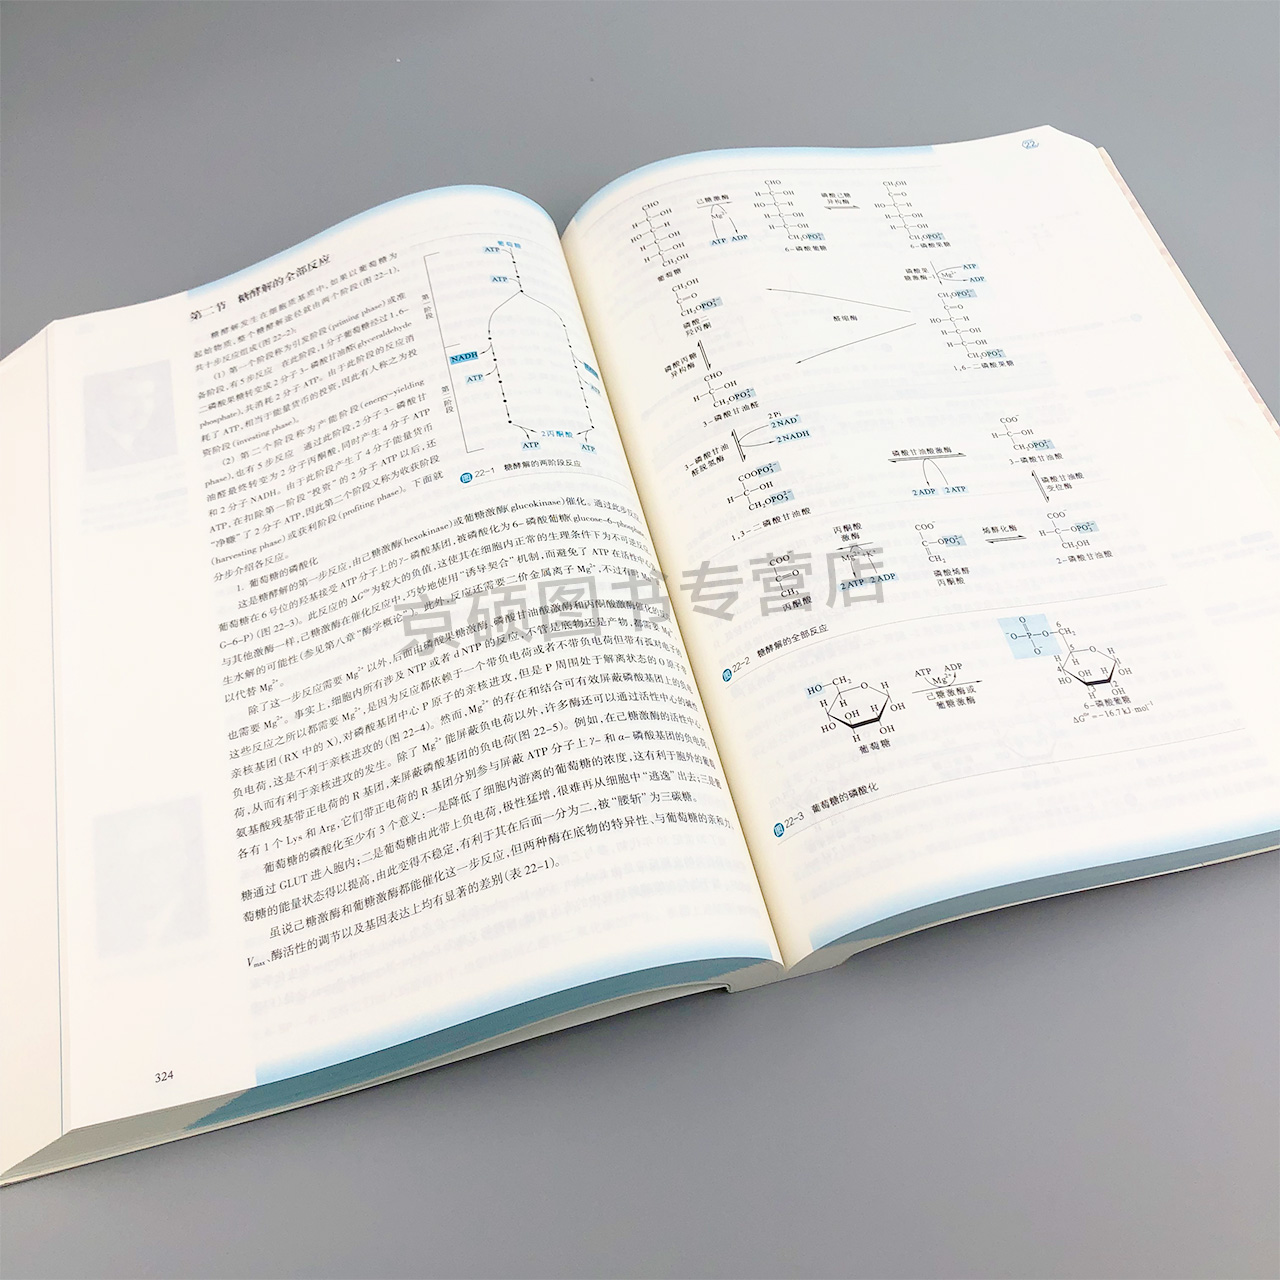 第二节 糖酵解的全部反应
糖酵解发生在细胞质基质中，如果以葡萄糖为
起始物质，整个糖酵解途径就由两个阶段(图 22-1)、
共十步反应组成(图 22-2)：
(1) 第一个阶段称为引发阶段(priming phase)或准
备阶段，有5步反应 在此阶段，1分子葡萄糖经过1,6-
二磷酸果糖转变成2分子3-磷酸甘油醛(glyceraldehyde
phosphate)，共消耗2分子ATP。由于此阶段的反应消
耗了ATP，相当于能量货币的投资，因此有人称之为投
资阶段(investing phase)。
(2) 第二个阶段称为产能阶段(energy-yielding
phase)，也有5步反应 通过此阶段，2分子3-磷酸甘
油醛最终转变为2分子丙酮酸，同时产生4分子ATP
和2分子NADH。由于此阶段产生了4分子能量货币
ATP，在扣除第一阶段“投资”的2分子ATP以后，还
“净赚”了2分子ATP，因此第二个阶段又称为收获阶段
(harvesting phase)或获利阶段(profiting phase)。下面就
分步介绍各反应。
1. 葡萄糖的磷酸化
这是糖酵解的第一步反应，由己糖激酶(hexokinase)或葡糖激酶(glucokinase)催化。通过此步反应，
葡萄糖在6号位的羟基接受ATP分子上的γ-磷酸基团，被磷酸化为6-磷酸葡糖(glucose-6-phosphate,
G-6-P)(图 22-3)。此反应的ΔG°′为较大的负值，这使其在细胞内正常的生理条件下为不可逆反应。
与其他激酶一样，己糖激酶在催化反应中，巧妙地使用“诱导契合”机制，而避免了ATP在活性中心
生水解的可能性(参见第八章“酶学概论”)。此外，反应还需要二价金属离子Mg²⁺，不过有时
以代替Mg²⁺。
除了这一步反应需要Mg²⁺以外，后面由磷酸果糖激酶、磷酸甘油酸激酶和丙酮酸激酶催化的
也需要Mg²⁺。事实上，细胞内所有涉及NTP或者dNTP的反应，不管是底物还是产物，都需要Mg²⁺。
这些反应之所以都需要Mg²⁺，是因为反应都依赖于一个带负电荷或者不带负电荷但带有孤对电子的
亲核基团(RX中的X)，对磷酸基团中心P原子的亲核进攻，但是P周围处于解离状态的O原子带
负电荷，这是不利于亲核进攻的(图 22-4)。然而，Mg²⁺的存在和结合可有效屏蔽磷酸基团上的负电
荷，从而有利于亲核进攻的发生。除了Mg²⁺能屏蔽负电荷以外，许多酶还可以通过活性中心的碱性
氨基酸残基带正电荷的R基团，来屏蔽磷酸基团的负电荷(图 22-5)。例如，在己糖激酶的活性中心，
各有1个Lys和Arg，它们带正电荷的R基团分别参与屏蔽ATP分子上γ-和α-磷酸基团的负电荷。
葡萄糖的磷酸化至少有3个意义：一是降低了细胞内游离的葡萄糖的浓度，这有利于胞外的葡萄
糖通过GLUT进入胞内；二是葡萄糖由此带上负电荷，极性猛增，很难再从细胞中“逃逸”出去；三是葡
萄糖的能量状态得以提高，由此变得不稳定，有利于其在后面一分为二，被“腰斩”为三碳糖。
虽说己糖激酶和葡糖激酶都能催化这一步反应，但两种酶在底物的特异性、与葡萄糖的亲和力、
Vmax、酶活性的调节以及基因表达上均有显著的差别(表 22-1)。
324
葡萄糖
ATP
ATP
第一阶段
NADH
ATP
第二阶段
2丙酮酸
ATP
ATP
图 22-1 糖酵解的两阶段反应
22
葡萄糖
己糖激酶
Mg²⁺
ATP ADP
6-磷酸葡糖
磷酸己糖
异构酶
6-磷酸果糖
磷酸果
糖激酶-1
Mg²⁺
ATP
ADP
1,6-二磷酸果糖
醛缩酶
磷酸二
羟丙酮
磷酸丙糖
异构酶
3-磷酸甘油醛
3-磷酸甘油
醛脱氢酶
2Pi
2NAD⁺
2NADH
1,3-二磷酸甘油酸
磷酸甘油酸激酶
2ADP 2ATP
3-磷酸甘油酸
磷酸甘油酸
变位酶
2-磷酸甘油酸
烯醇化酶
磷酸烯醇
丙酮酸
丙酮酸
激酶
2ATP 2ADP
丙酮酸
图 22-2 糖酵解的全部反应
葡萄糖
ATP ADP
Mg²⁺
己糖激酶或
葡糖激酶
6-磷酸葡糖
ΔG°′=-16.7kJ·mol⁻¹
图 22-3 葡萄糖的磷酸化
京硕图书专营店